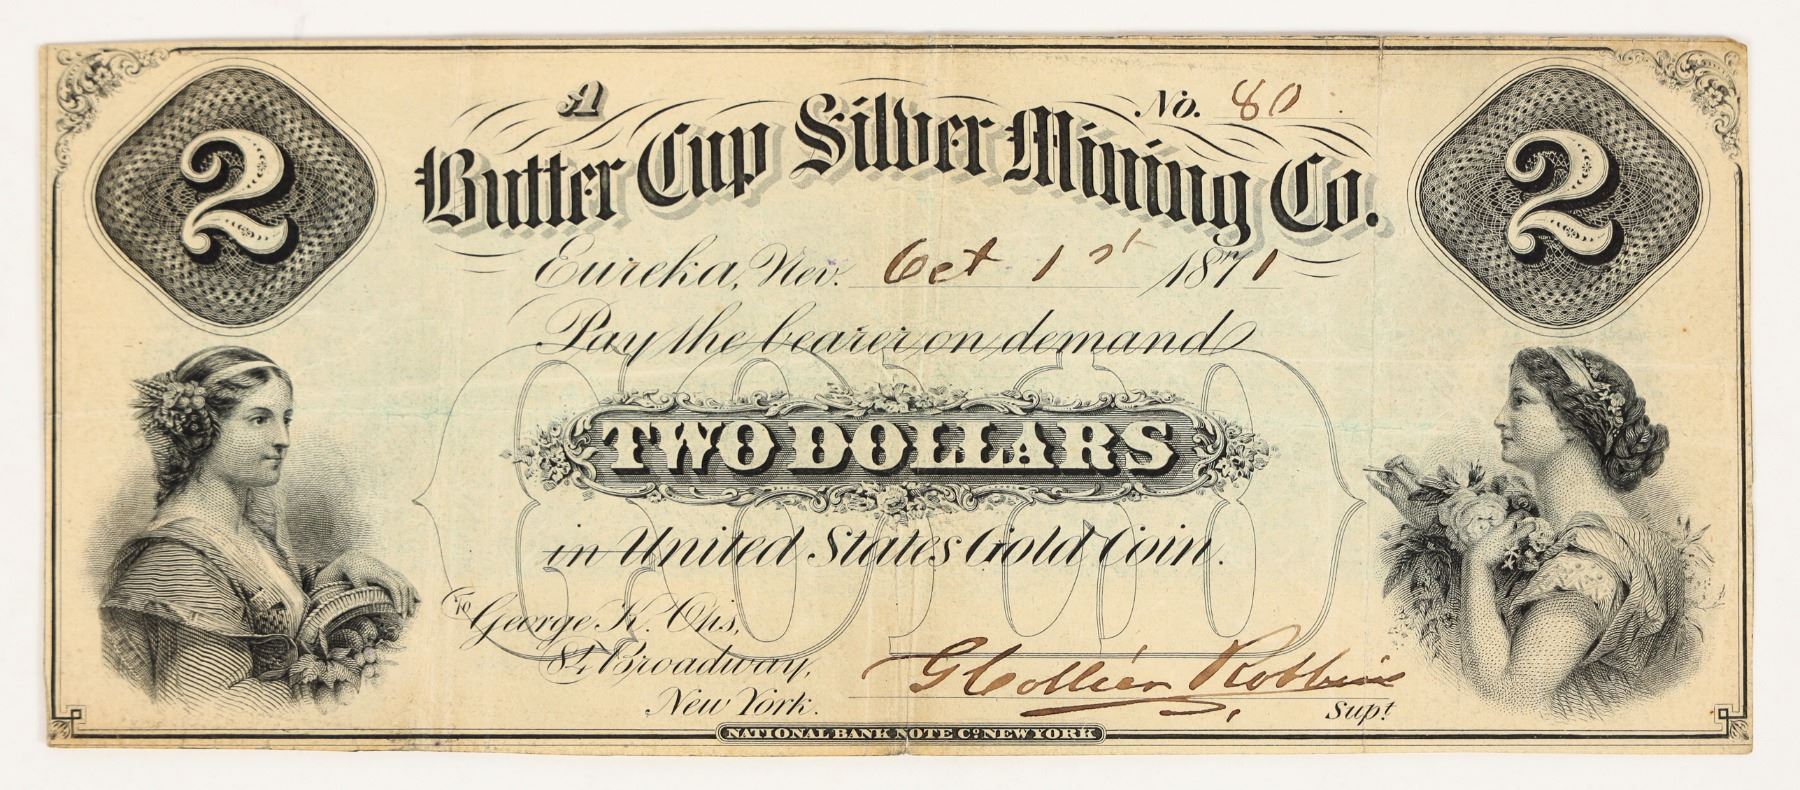 A No. 80
2 2
Butter Cup Silver Mining Co.
Eureka, Nev. Oct 1st 1871
Pay the bearer on demand
TWO DOLLARS
in United States Gold Coin.
To George K. Otis,
84 Broadway,
New York.
G Collier Robbins
Supt
NATIONAL BANK NOTE Co NEW YORK